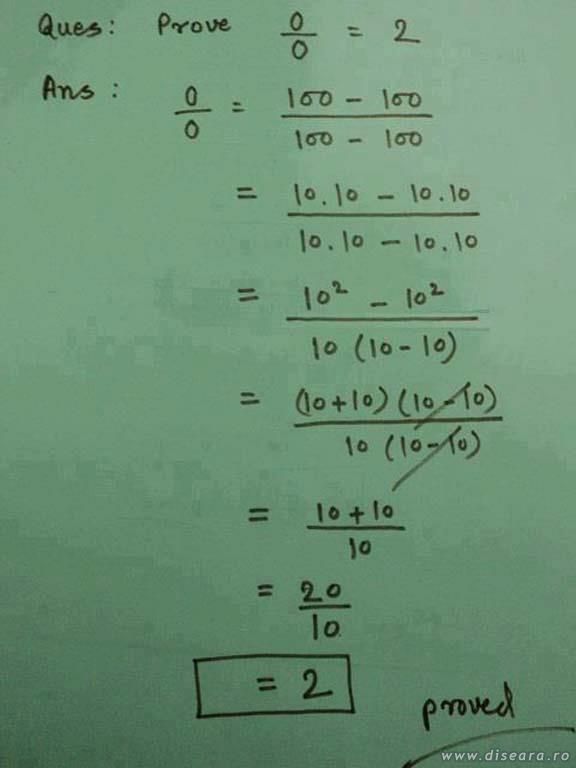 Ques: Prove 0/0 = 2
Ans: 0/0 = (100 - 100)/(100 - 100)
= (10.10 - 10.10)/(10.10 - 10.10)
= (10² - 10²)/(10 (10 - 10))
= ((10+10) (10 - 10))/(10 (10 - 10))
= (10 + 10)/10
= 20/10
= 2
proved
www.diseara.ro